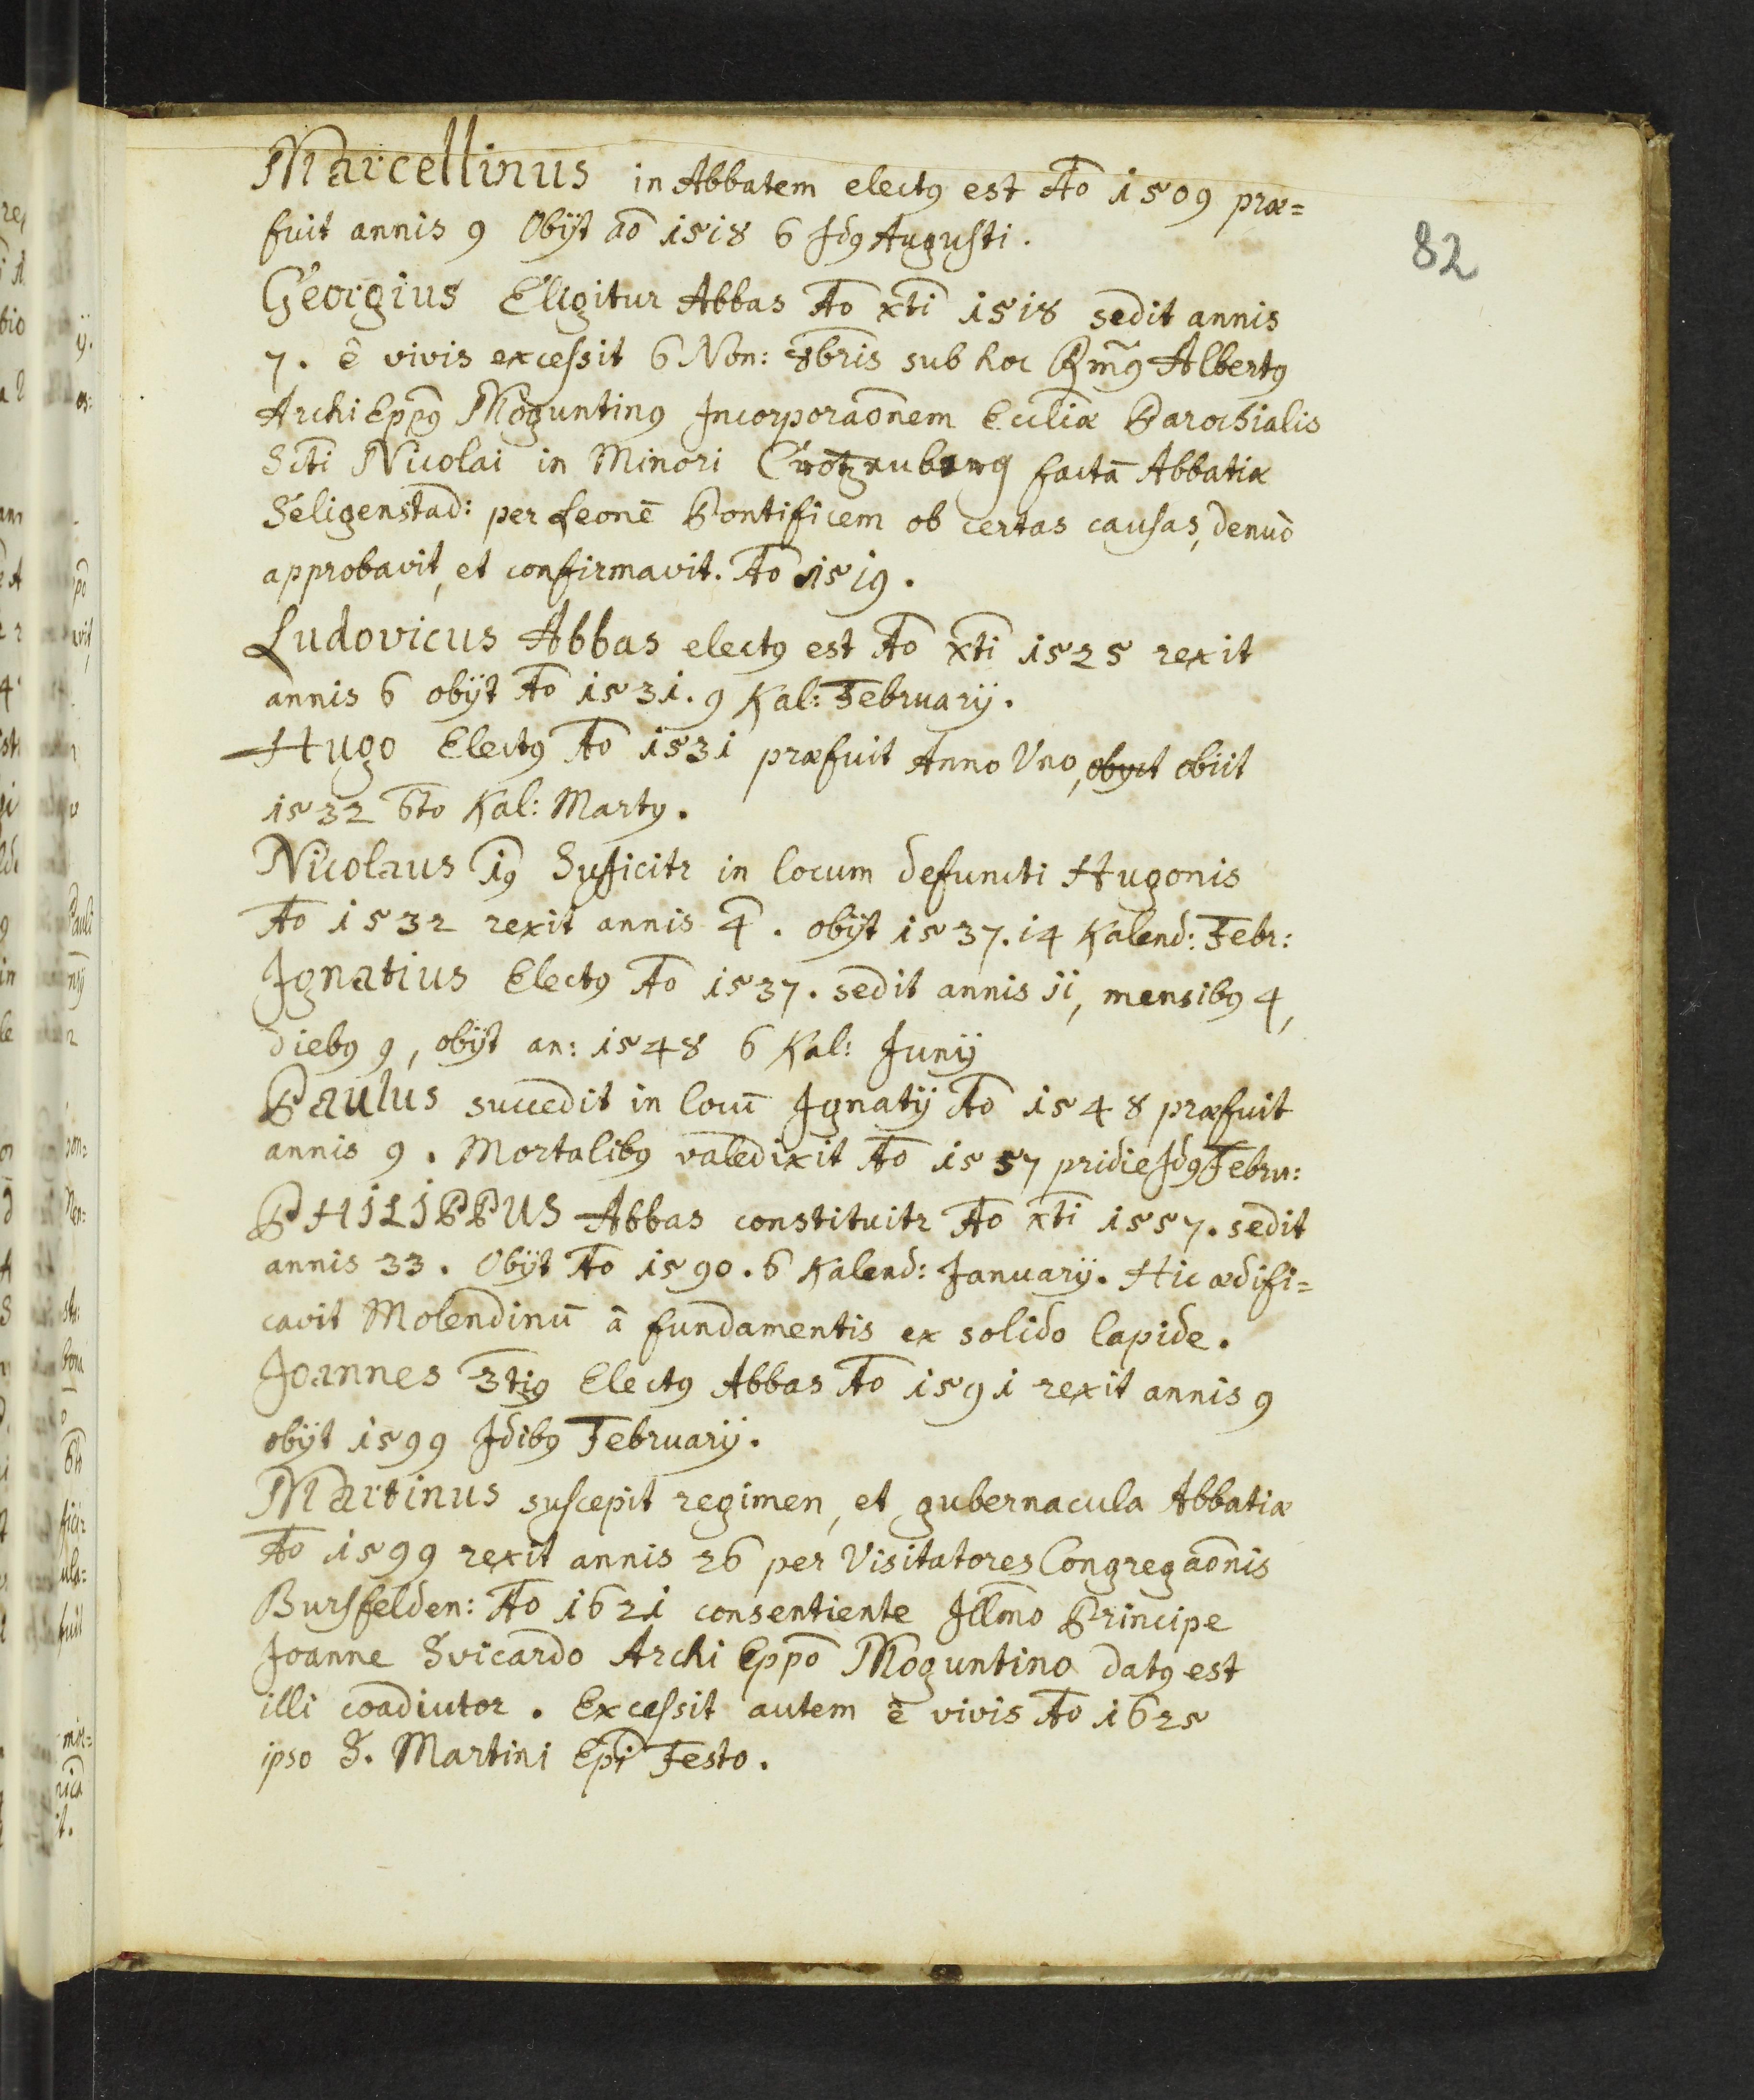 Marcellinus in Abbatem electꝯ est Ao̅ 1509 præ=
fuit annis 9 Obijt ao̅ 1518 6 Idꝯ Augusti.
82
Georgius Eligitur Abbas Ao̅ xti̅ 1518 sedit annis
7. è vivis excessit 6 Non: 8bris sub hoc Rm̃ꝯ Albertꝯ
Archi Epp̅ꝯ Moguntinꝯ Incorporao̅nem Eccliæ Parochialis
Scti Nicolai in Minori Crotzenburg factā Abbatiæ
Seligenstad: per Leonē Pontificem ob certas causas, denuò
approbavit, et confirmavit. Ao̅ 1519.
Ludovicus Abbas electꝯ est Ao̅ xti̅ 1525 rexit
annis 6 obijt Ao̅ 1531. 9 Kal: February.
Hugo Electꝯ Ao̅ 1531 præfuit Anno Uno, obyit obiit
1532 6to Kal: Marty.
Nicolaus 1ꝯ Suficitr in locum defuncti Hugonis
Ao̅ 1532 rexit annis 4. obijt 1537. 14 Kalend: Febr:
Ignatius Electꝯ Ao̅ 1537. sedit annis ii, mensibꝯ 4,
diebꝯ 9, obijt an: 1548 6 Kal: Junij
Paulus succedit in locū Ignatij Ao̅ 1548 præfuit
annis 9. Mortalibꝯ valedixit Ao̅ 1557 pridie Idꝯ Febru:
PHILIPPUS Abbas constituitr Ao̅ xti̅ 1557. sedit
annis 33. Obijt Ao̅ 1590. 6 Kalend: Januarij. Hic ædifi=
cavit Molendinū â fundamentis ex solido lapide.
Joannes 3tiꝯ Electꝯ Abbas Ao̅ 1591 rexit annis 9
obijt 1599 Idibꝯ Februarij.
Martinus suscepit regimen, et gubernacula Abbatiæ
Ao̅ 1599 rexit annis 26 per Visitatores Congregao̅nis
Bursfelden: Ao̅ 1621 consentiente Illm̅o Principe
Joanne Svicardo Archi Epp̅o Moguntino datꝯ est
illi coadiutor. Excessit autem è vivis Ao̅ 1625
ipso S. Martini Ep̅i Festo.